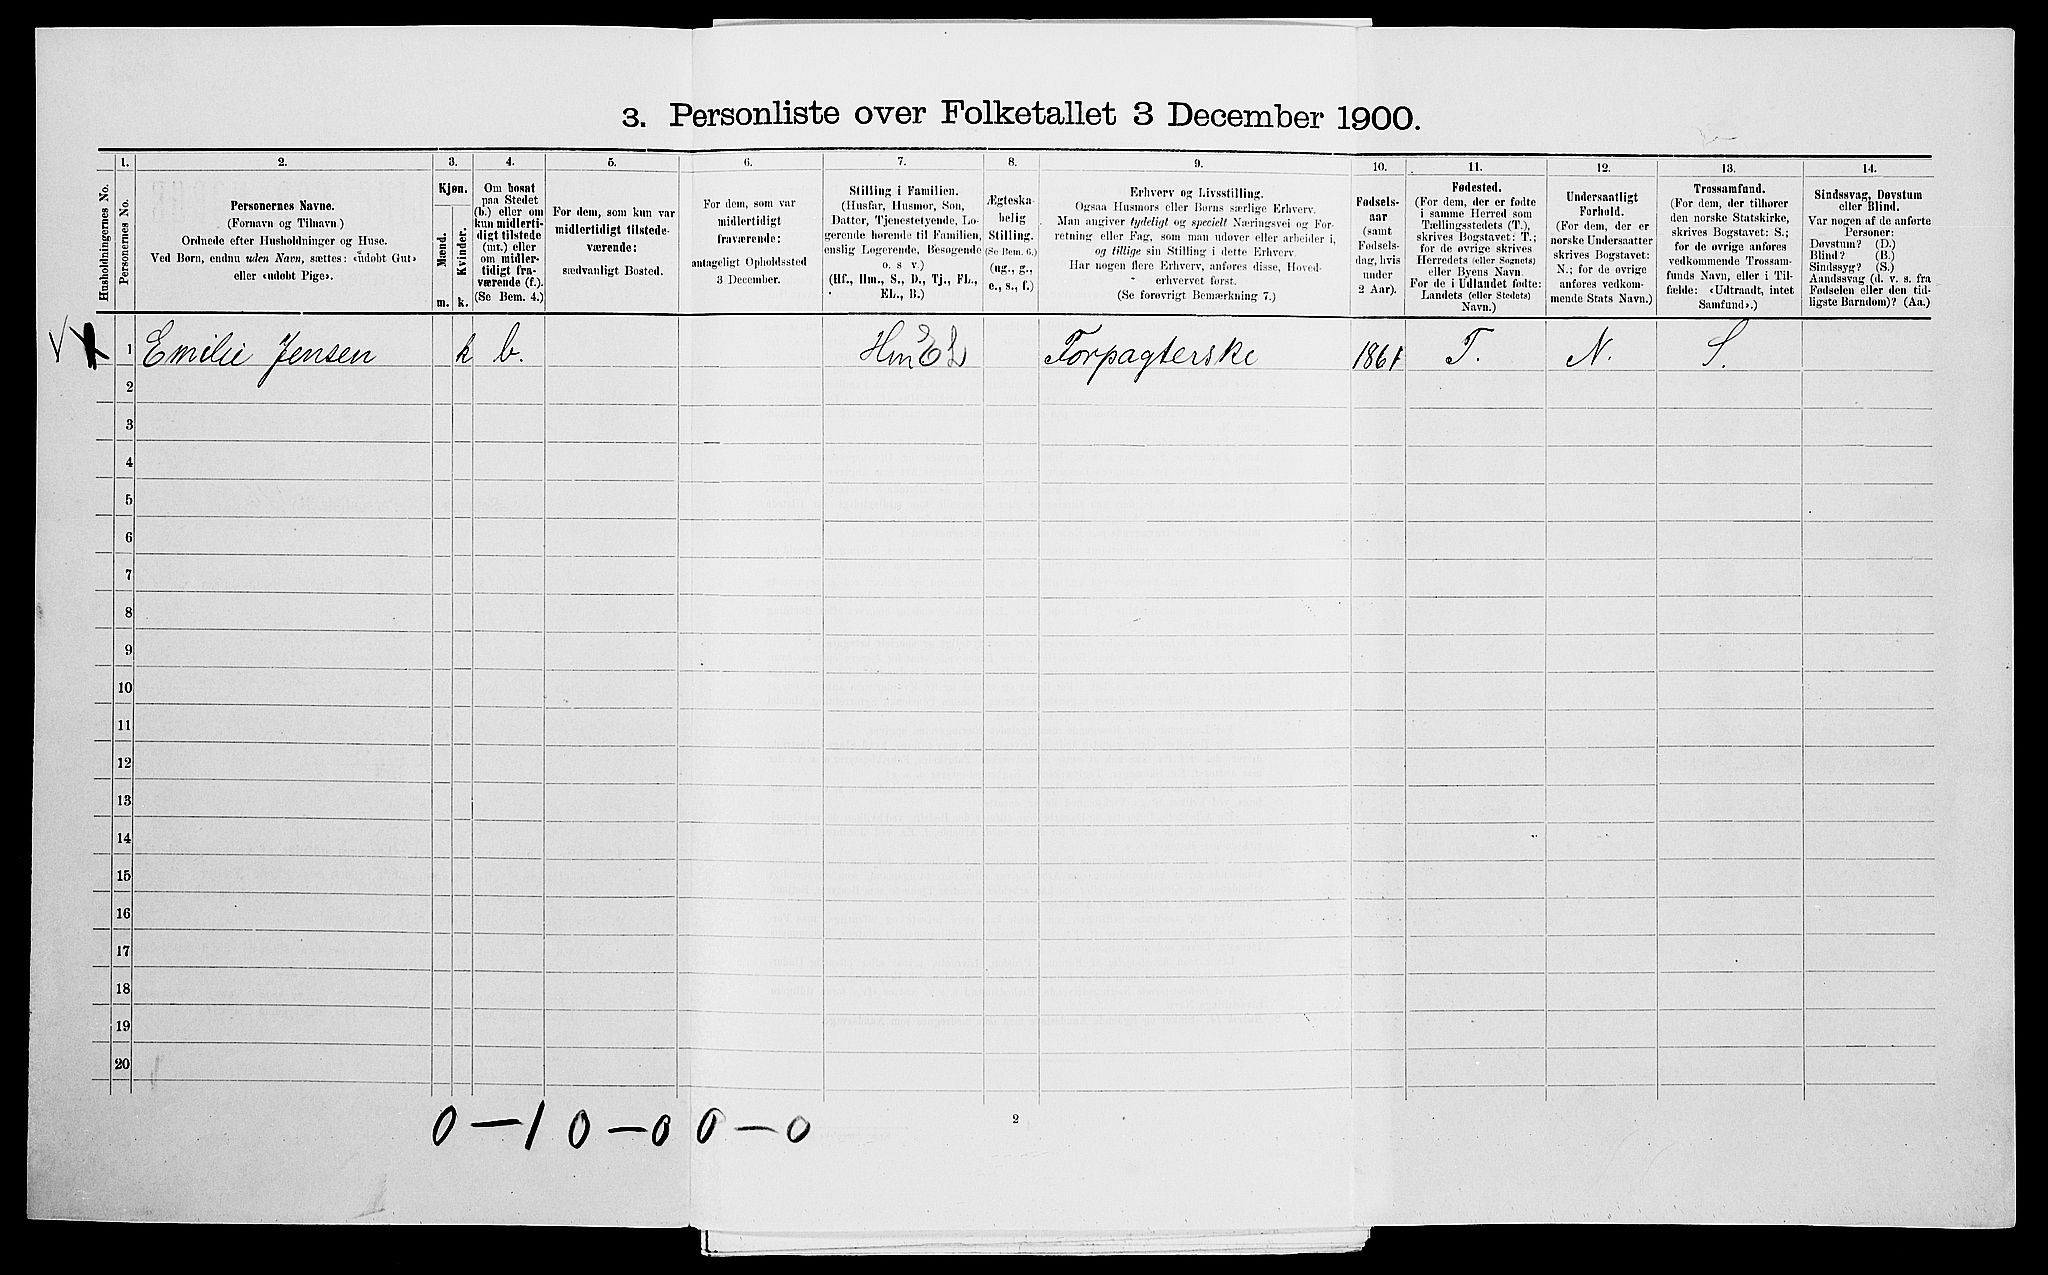 3. Personliste over Folketallet 3 December 1900.
1. 2. 3. 4. 5. 6. 7. 8. 9. 10. 11. 12. 13. 14.
Husholdningernes No.
Personernes No.
Personernes Navne.
(Fornavn og Tilnavn)
Ordnede efter Husholdninger og Huse.
Ved Børn, endnu uden Navn, sættes: «udøbt Gut»
eller «udøbt Pige».
Kjøn.
Mænd.
Kvinder.
m. k.
Om bosat
paa Stedet
(b.) eller om
kun midlerti-
digt tilstede
(mt.) eller
om midler-
tidigt fra-
værende (f.).
(Se Bem. 4.)
For dem, som kun var
midlertidigt tilstede-
værende:
sædvanligt Bosted.
For dem, som var
midlertidigt
fraværende:
antageligt Opholdssted
3 December.
Stilling i Familien.
(Husfar, Husmor, Søn,
Datter, Tjenestetyende, Lo-
gerende hørende til Familien,
enslig Logerende, Besøgende
o. s. v.)
(Hf., Hm., S., D., Tj., FL.,
EL., B.)
Ægteska-
belig
Stilling.
(Se Bem. 6.)
(ug., g.,
e., s., f.)
Erhverv og Livsstilling.
Ogsaa Husmors eller Børns særlige Erhverv.
Man angiver tydeligt og specielt Næringsvei og For-
retning eller Fag, som man udøver eller arbeider i,
og tillige sin Stilling i dette Erhverv.
Har nogen flere Erhverv, anføres disse, Hoved-
erhvervet først.
(Se forøvrigt Bemærkning 7.)
Fødsels-
aar
(samt
Fødsels-
dag, hvis
under
2 Aar).
Fødested.
(For dem, der er fødte
i samme Herred som
Tællingsstedets (T.),
skrives Bogstavet: T.;
for de øvrige skrives
Herredets (eller Sognets)
eller Byens Navn.
For de i Udlandet fødte:
Landets (eller Stedets)
Navn.)
Undersaatligt
Forhold.
(For dem, der er
norske Undersaatter
skrives Bogstavet:
N.; for de øvrige
anføres vedkom-
mende Stats Navn.)
Trossamfund.
(For dem, der tilhører
den norske Statskirke,
skrives Bogstavet: S.;
for de øvrige anføres
vedkommende Trossam-
funds Navn, eller i Til-
fælde: «Udtraadt, intet
Samfund».)
Sindssvag, Døvstum
eller Blind.
Var nogen af de anførte
Personer:
Døvstum? (D.)
Blind? (B.)
Sindssyg? (S.)
Aandssvag (d. v. s. fra
Fødselen eller den tid-
ligste Barndom)? (Aa.)
1 Emilie Jensen k b. Hm EL Forpagterske 1861 T. N. S.
2
3
4
5
6
7
8
9
10
11
12
13
14
15
16
17
18
19
20
0 – 1 0 – 0 0 – 0
2